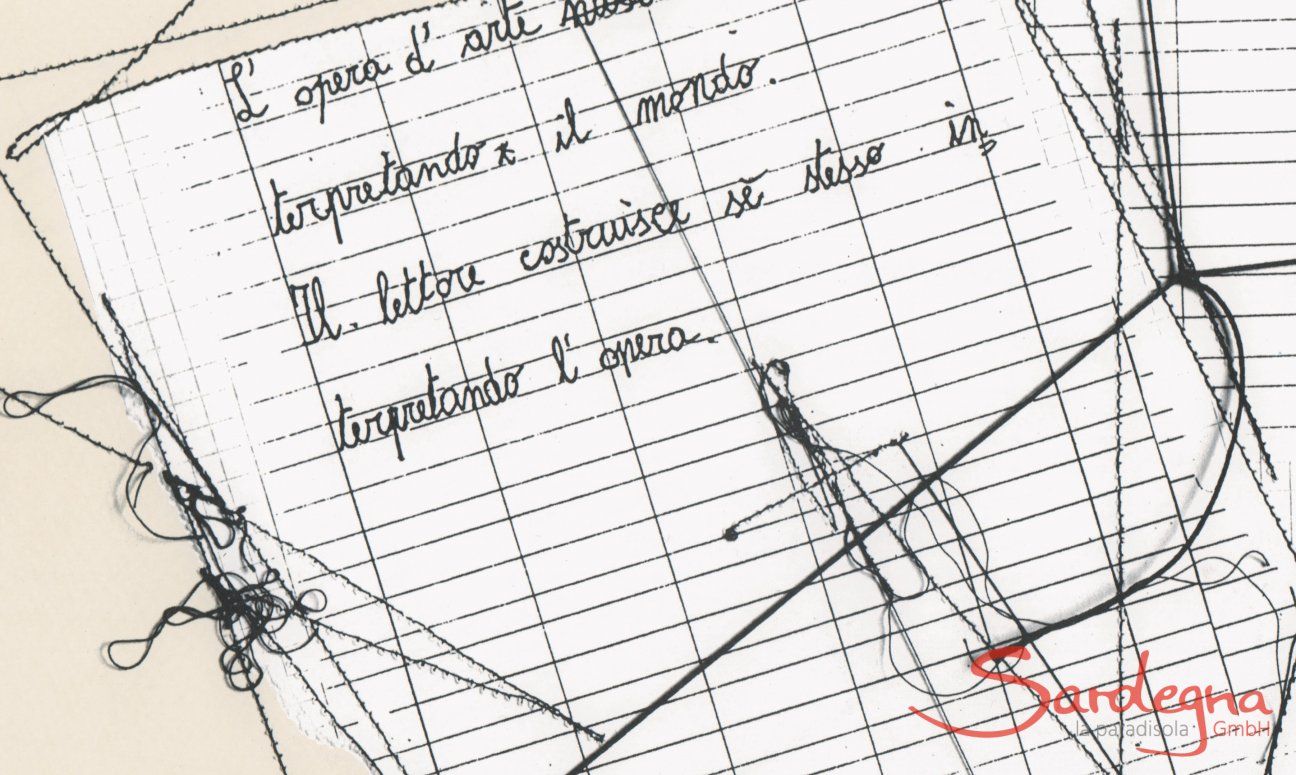 L' opera d' arte
terpretando il mondo.
Il lettore costruisce sé stesso in
terpretando l' opera.
Sardegna
la paradisola GmbH